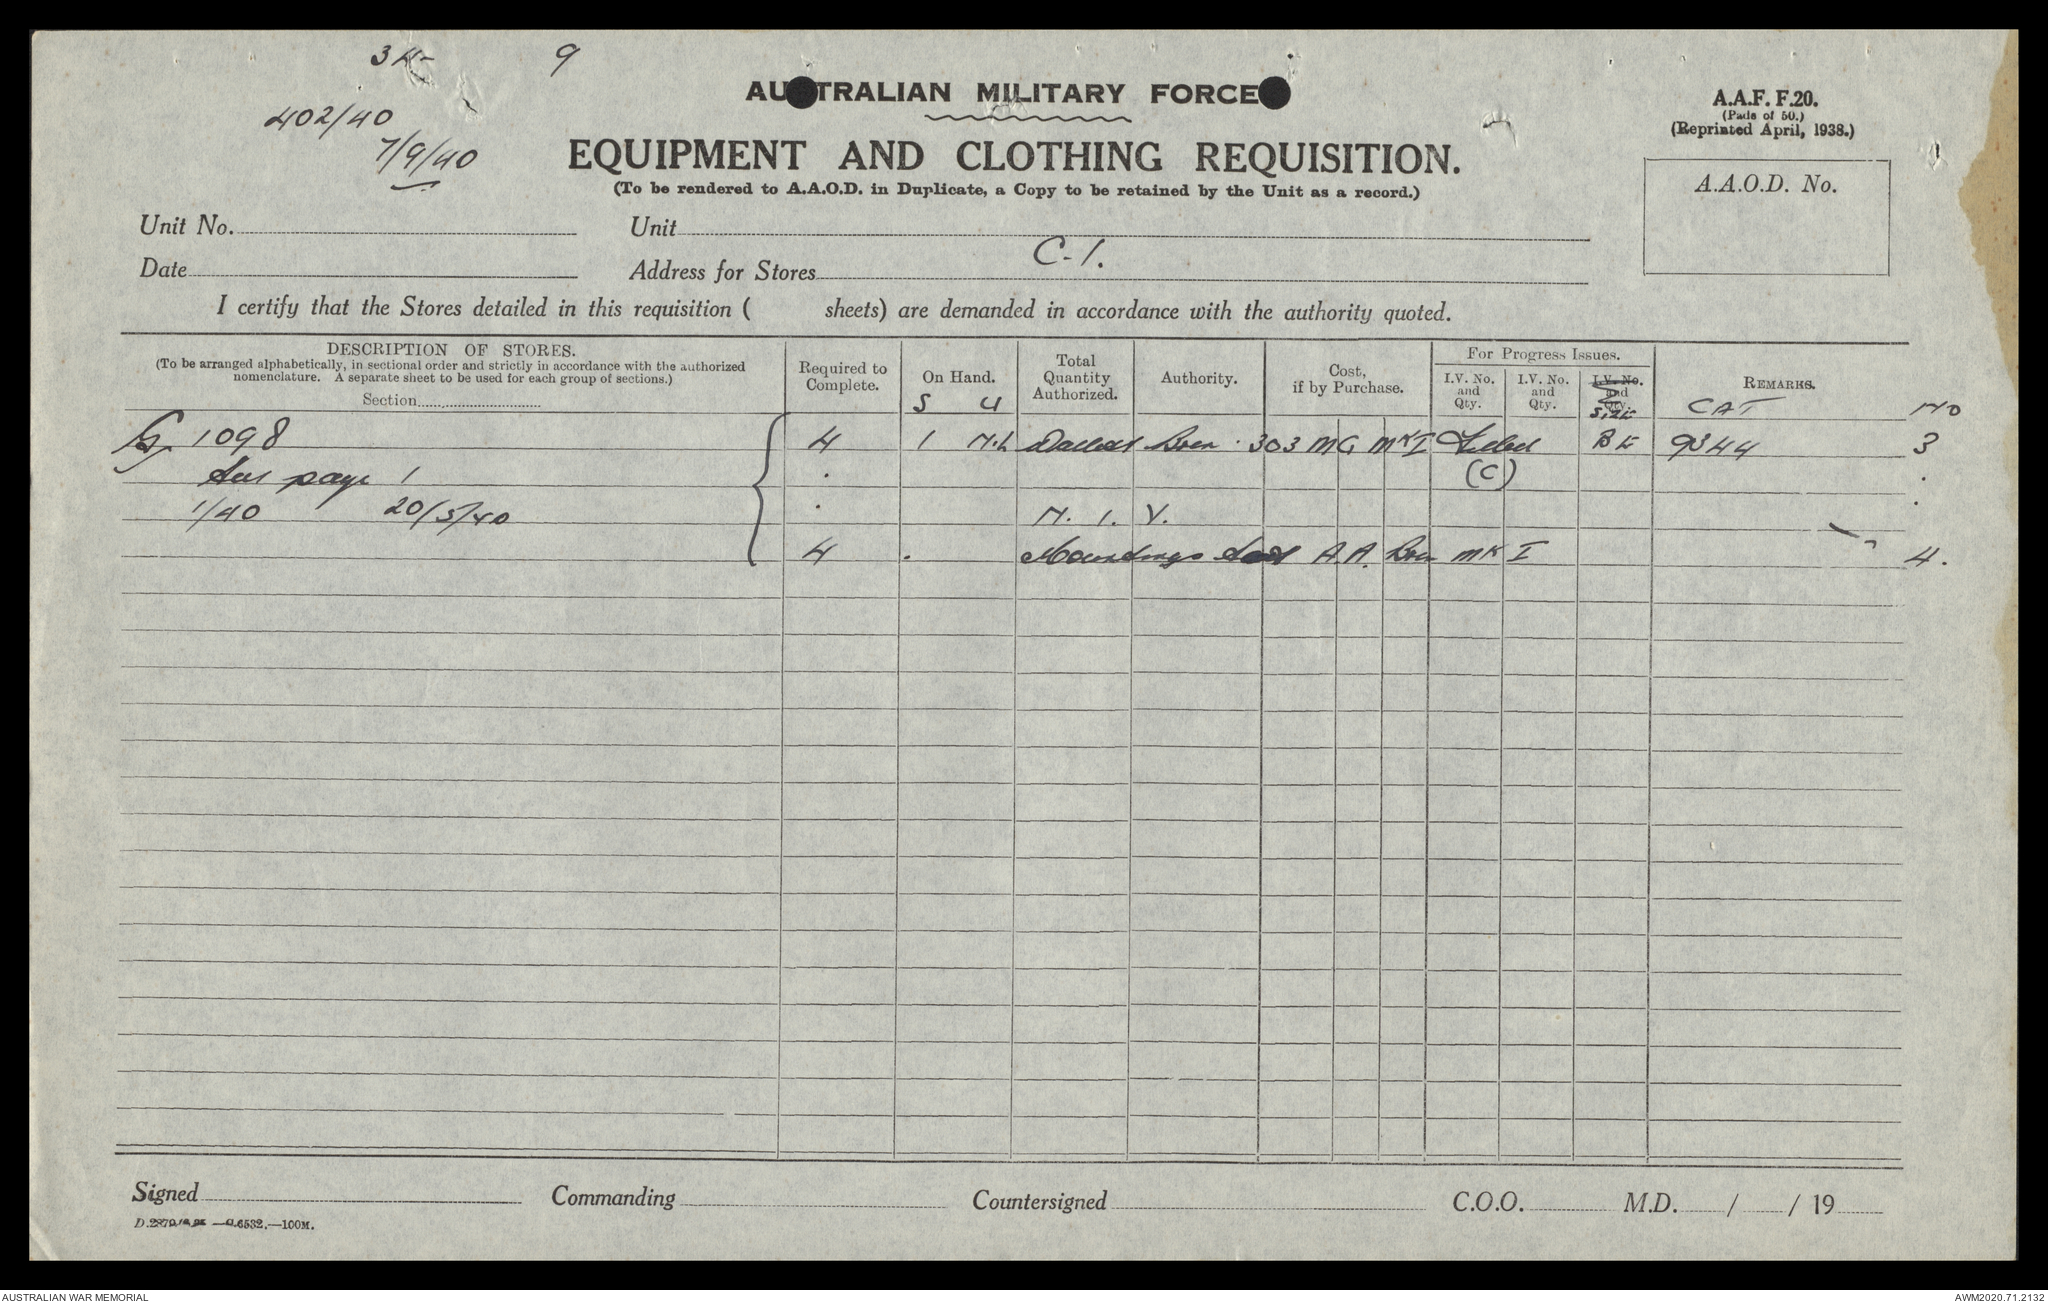 34 9
402/40
7/9/40
AUSTRALIAN MILITARY FORCES
EQUIPMENT AND CLOTHING REQUISITION.
(To be rendered to A.A.O.D. in Duplicate, a Copy to be retained by the Unit as a record.)
A.A.F. F.20.
(Pads of 50.)
(Reprinted April, 1938.)
A.A.O.D. No.
Unit No. Unit
C.1.
Date Address for Stores
I certify that the Stores detailed in this requisition ( sheets) are demanded in accordance with the authority quoted.
DESCRIPTION OF STORES.
(To be arranged alphabetically, in sectional order and strictly in accordance with the authorized
nomenclature. A separate sheet to be used for each group of sections.)
Section
Required to
Complete.
On Hand.
S U
Total
Quantity
Authorized.
Authority.
Cost,
if by Purchase.
For Progress Issues.
I.V. No.
and
Qty.
I.V. No.
and
Qty.
I.V. No.
and
Qty.
Size
REMARKS.
CAT NO
G 1098 4 1 Bren .303 MG MK I BE 9344 3
See page 1 . (C) .
1/40 20/5/40 . N. I. V. .
4 . Mountings A.A. Bren MK I 4.
Signed Commanding Countersigned C.O.O. M.D. / / 19
6532.—100M.
AUSTRALIAN WAR MEMORIAL AWM2020.71.2132